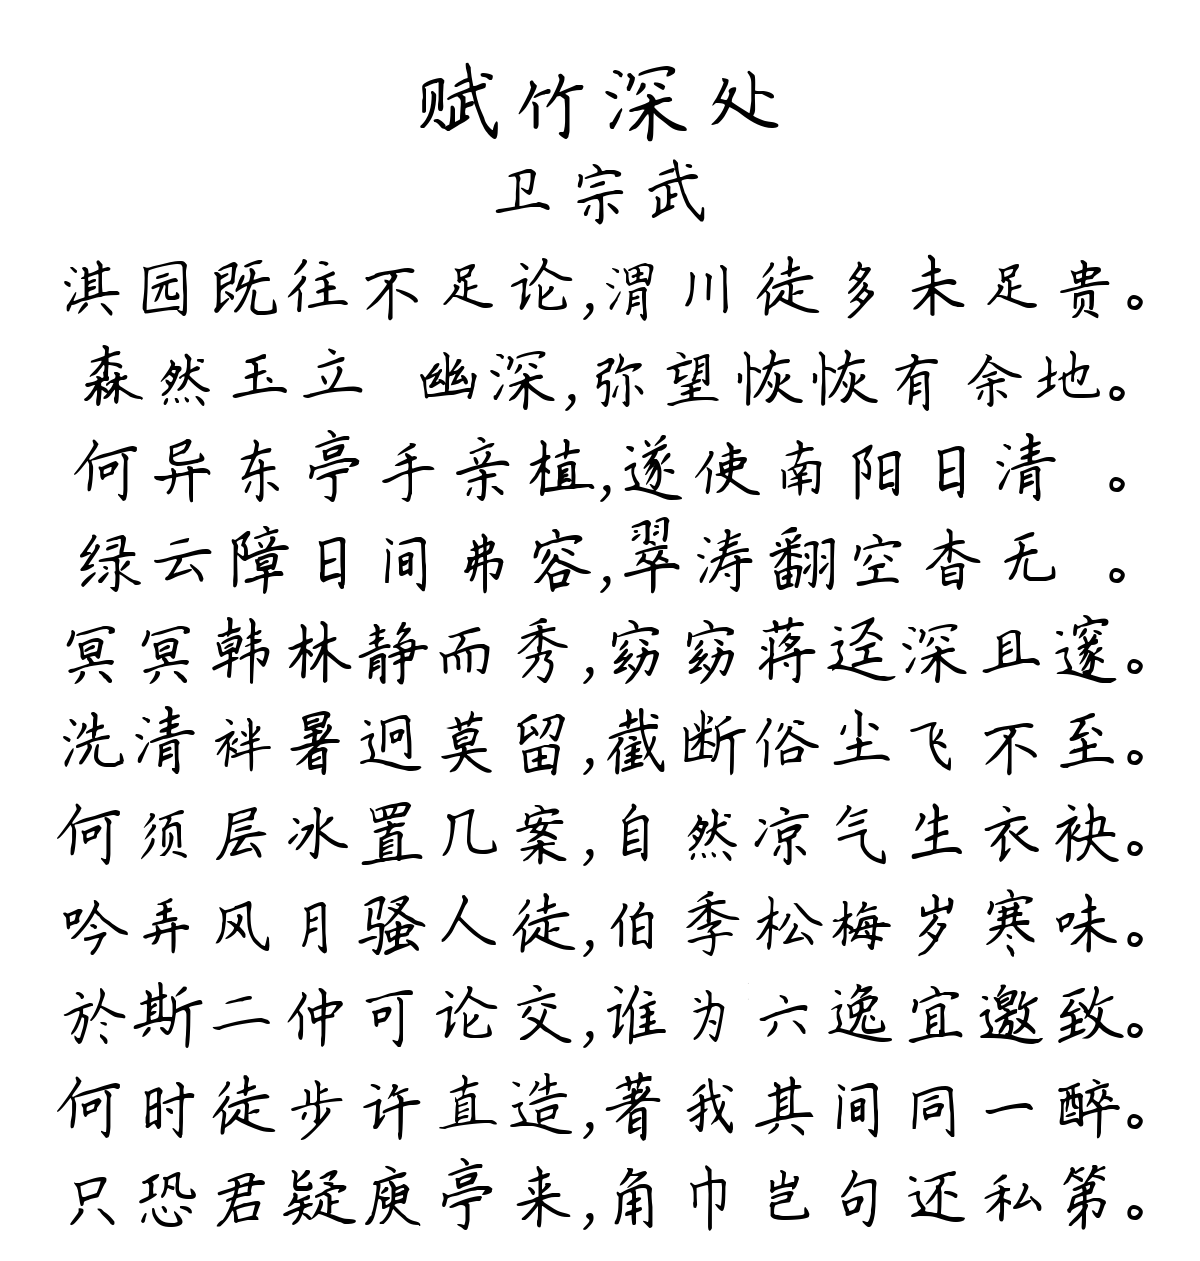 赋竹深处
卫宗武
淇园既往不足论,渭川徒多未足贵。
森然玉立 幽深,弥望恢恢有余地。
何异东亭手亲植,遂使南阳日清 。
绿云障日间弗容,翠涛翻空杳无 。
冥冥韩林静而秀,窈窈蒋迳深且邃。
洗清袢暑迥莫留,截断俗尘飞不至。
何须层冰置几案,自然凉气生衣袂。
吟弄风月骚人徒,伯季松梅岁寒味。
於斯二仲可论交,谁为六逸宜邀致。
何时徒步许直造,著我其间同一醉。
只恐君疑庾亭来,角巾岂句还私第。